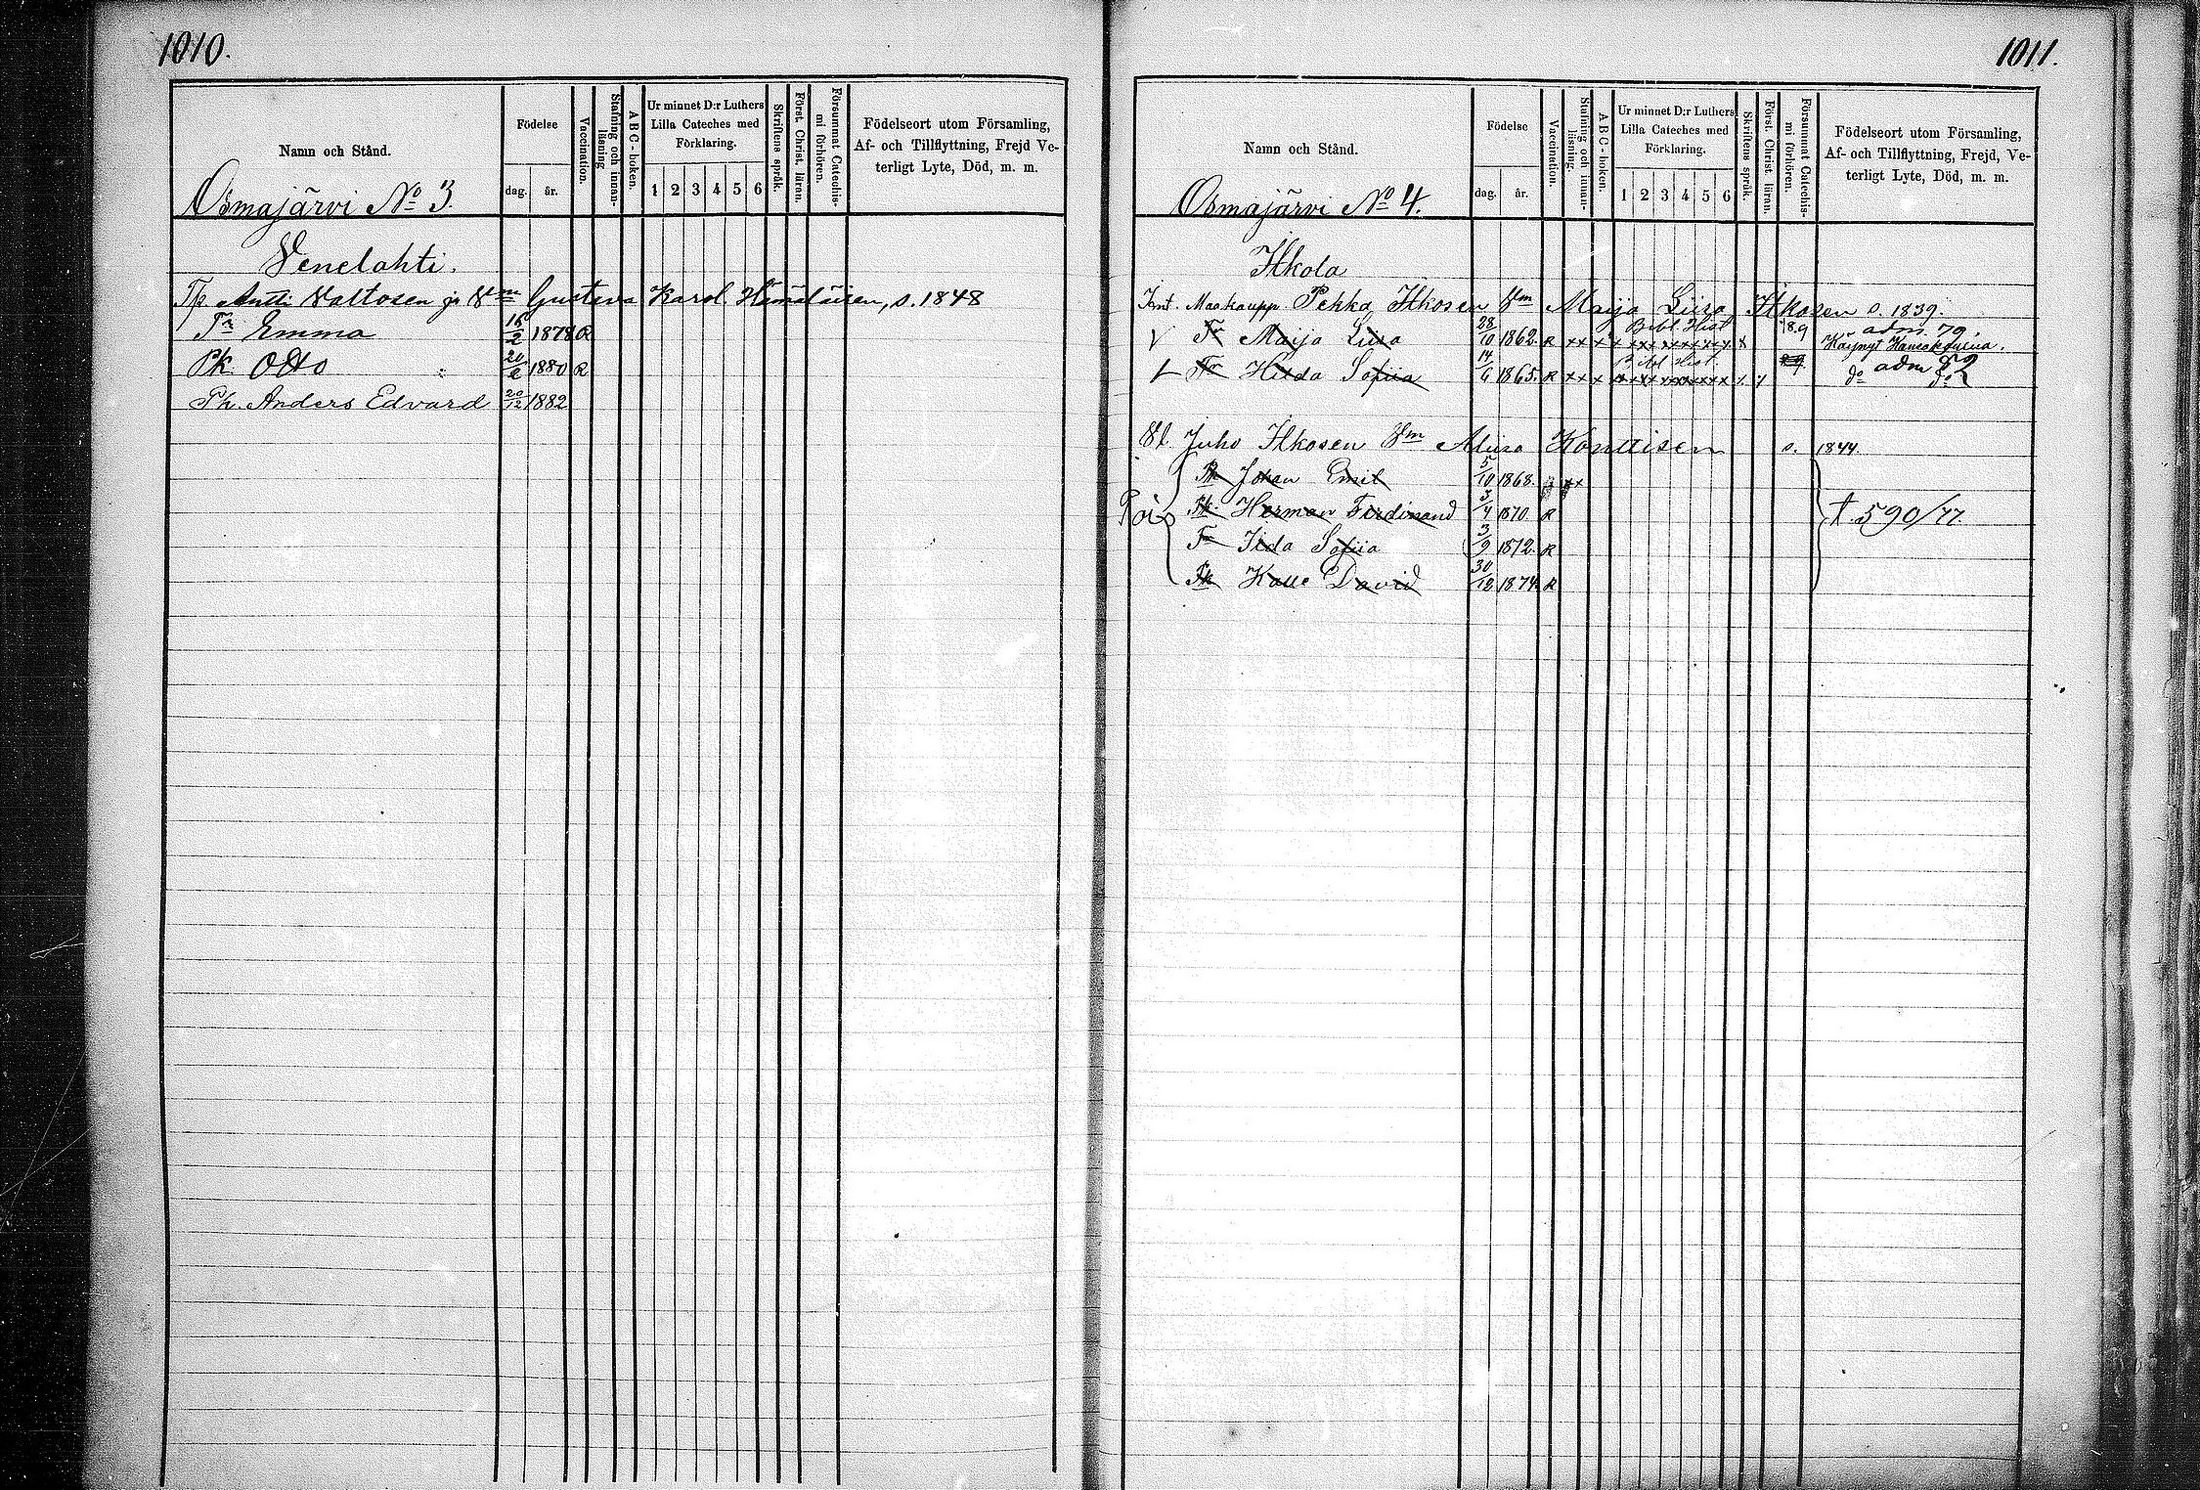 1010.
Namn och Stånd.
Födelse
dag.
år.
Vaccination.
Stafning och innan-
läsning
A B C - boken.
Ur minnet D:r Luthers
Lilla Cateches med
Förklaring.
1 2 3 4 5 6
Skriftens språk.
Först. Christ. läran.
Försummat Catechis-
mi förhören.
Födelseort utom Församling,
Af- och Tillflyttning, Frejd Ve-
terligt Lyte, Död, m. m.
Osmajärvi No 3.
Venelahti.
Tp Antti Valtosen ja Vm Gustava Karol. Hämäläisen, s. 1848
Tr Emma 16/2 1878 R
Pk. Otto 20/6 1880 R
Pk. Anders Edvard 20/12 1882
1011.
Namn och Stånd.
Födelse
dag.
år.
Vaccination.
Stafning och innan-
läsning.
A B C - boken.
Ur minnet D:r Luthers
Lilla Cateches med
Förklaring.
1 2 3 4 5 6
Skriftens språk.
Först. Christ. läran.
Försummat Catechis-
mi förhören.
Födelseort utom Församling,
Af- och Tillflyttning, Frejd, Ve-
terligt Lyte, Död, m. m.
Osmajärvi No 4.
Itkola
Maakaupp. Pekka Itkosen Vm Maija Liisa Itkosen s. 1839.
Tr Maija Liisa 28/10 1862. R Bibl. Hist 78.9 adm. 79.
Tr Hilda Sofiia 14/6 1865. R Bibl Hist. do adm 82
Vl. Juho Itkosen Vm Aliisa Konttisen s. 1844
Pk Johan Emil 5/10 1868.
Pois Pk. Herman Ferdinand 3/4 1870. R t. 590/77.
Tr Iida Sofiia 3/9 1872. R
Pk Kalle David 30/12 1874. R